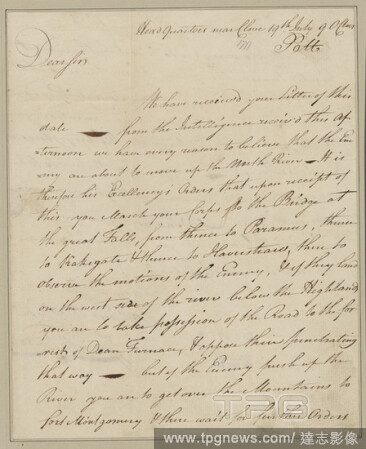 Head Quarters near Clove 19th July 9 O Clock
Dear Sir
We have received your Letter of this
date — from the Intelligence receiv'd this Af-
ternoon we have every reason to believe that the En-
my are about to move up the North River — It is
therefore his Excellency's Orders that upon receipt of
this you March your Corps to the Bridge at
the great Falls, from thence to Paramus, thence
to Kakegate & thence to Haverstraw, there to
observe the motions of the Enemy, & if they land
on the west side of the river below the Highlands
you are to take possession of the Road to the for
rest of Dean Furnace, & oppose their penetrating
that way — but if the Enemy push up the
River you are to get over the Mountains to
fort Montgomery & there wait for further Orders
TPG
www.tpgnews.com | 達志影像